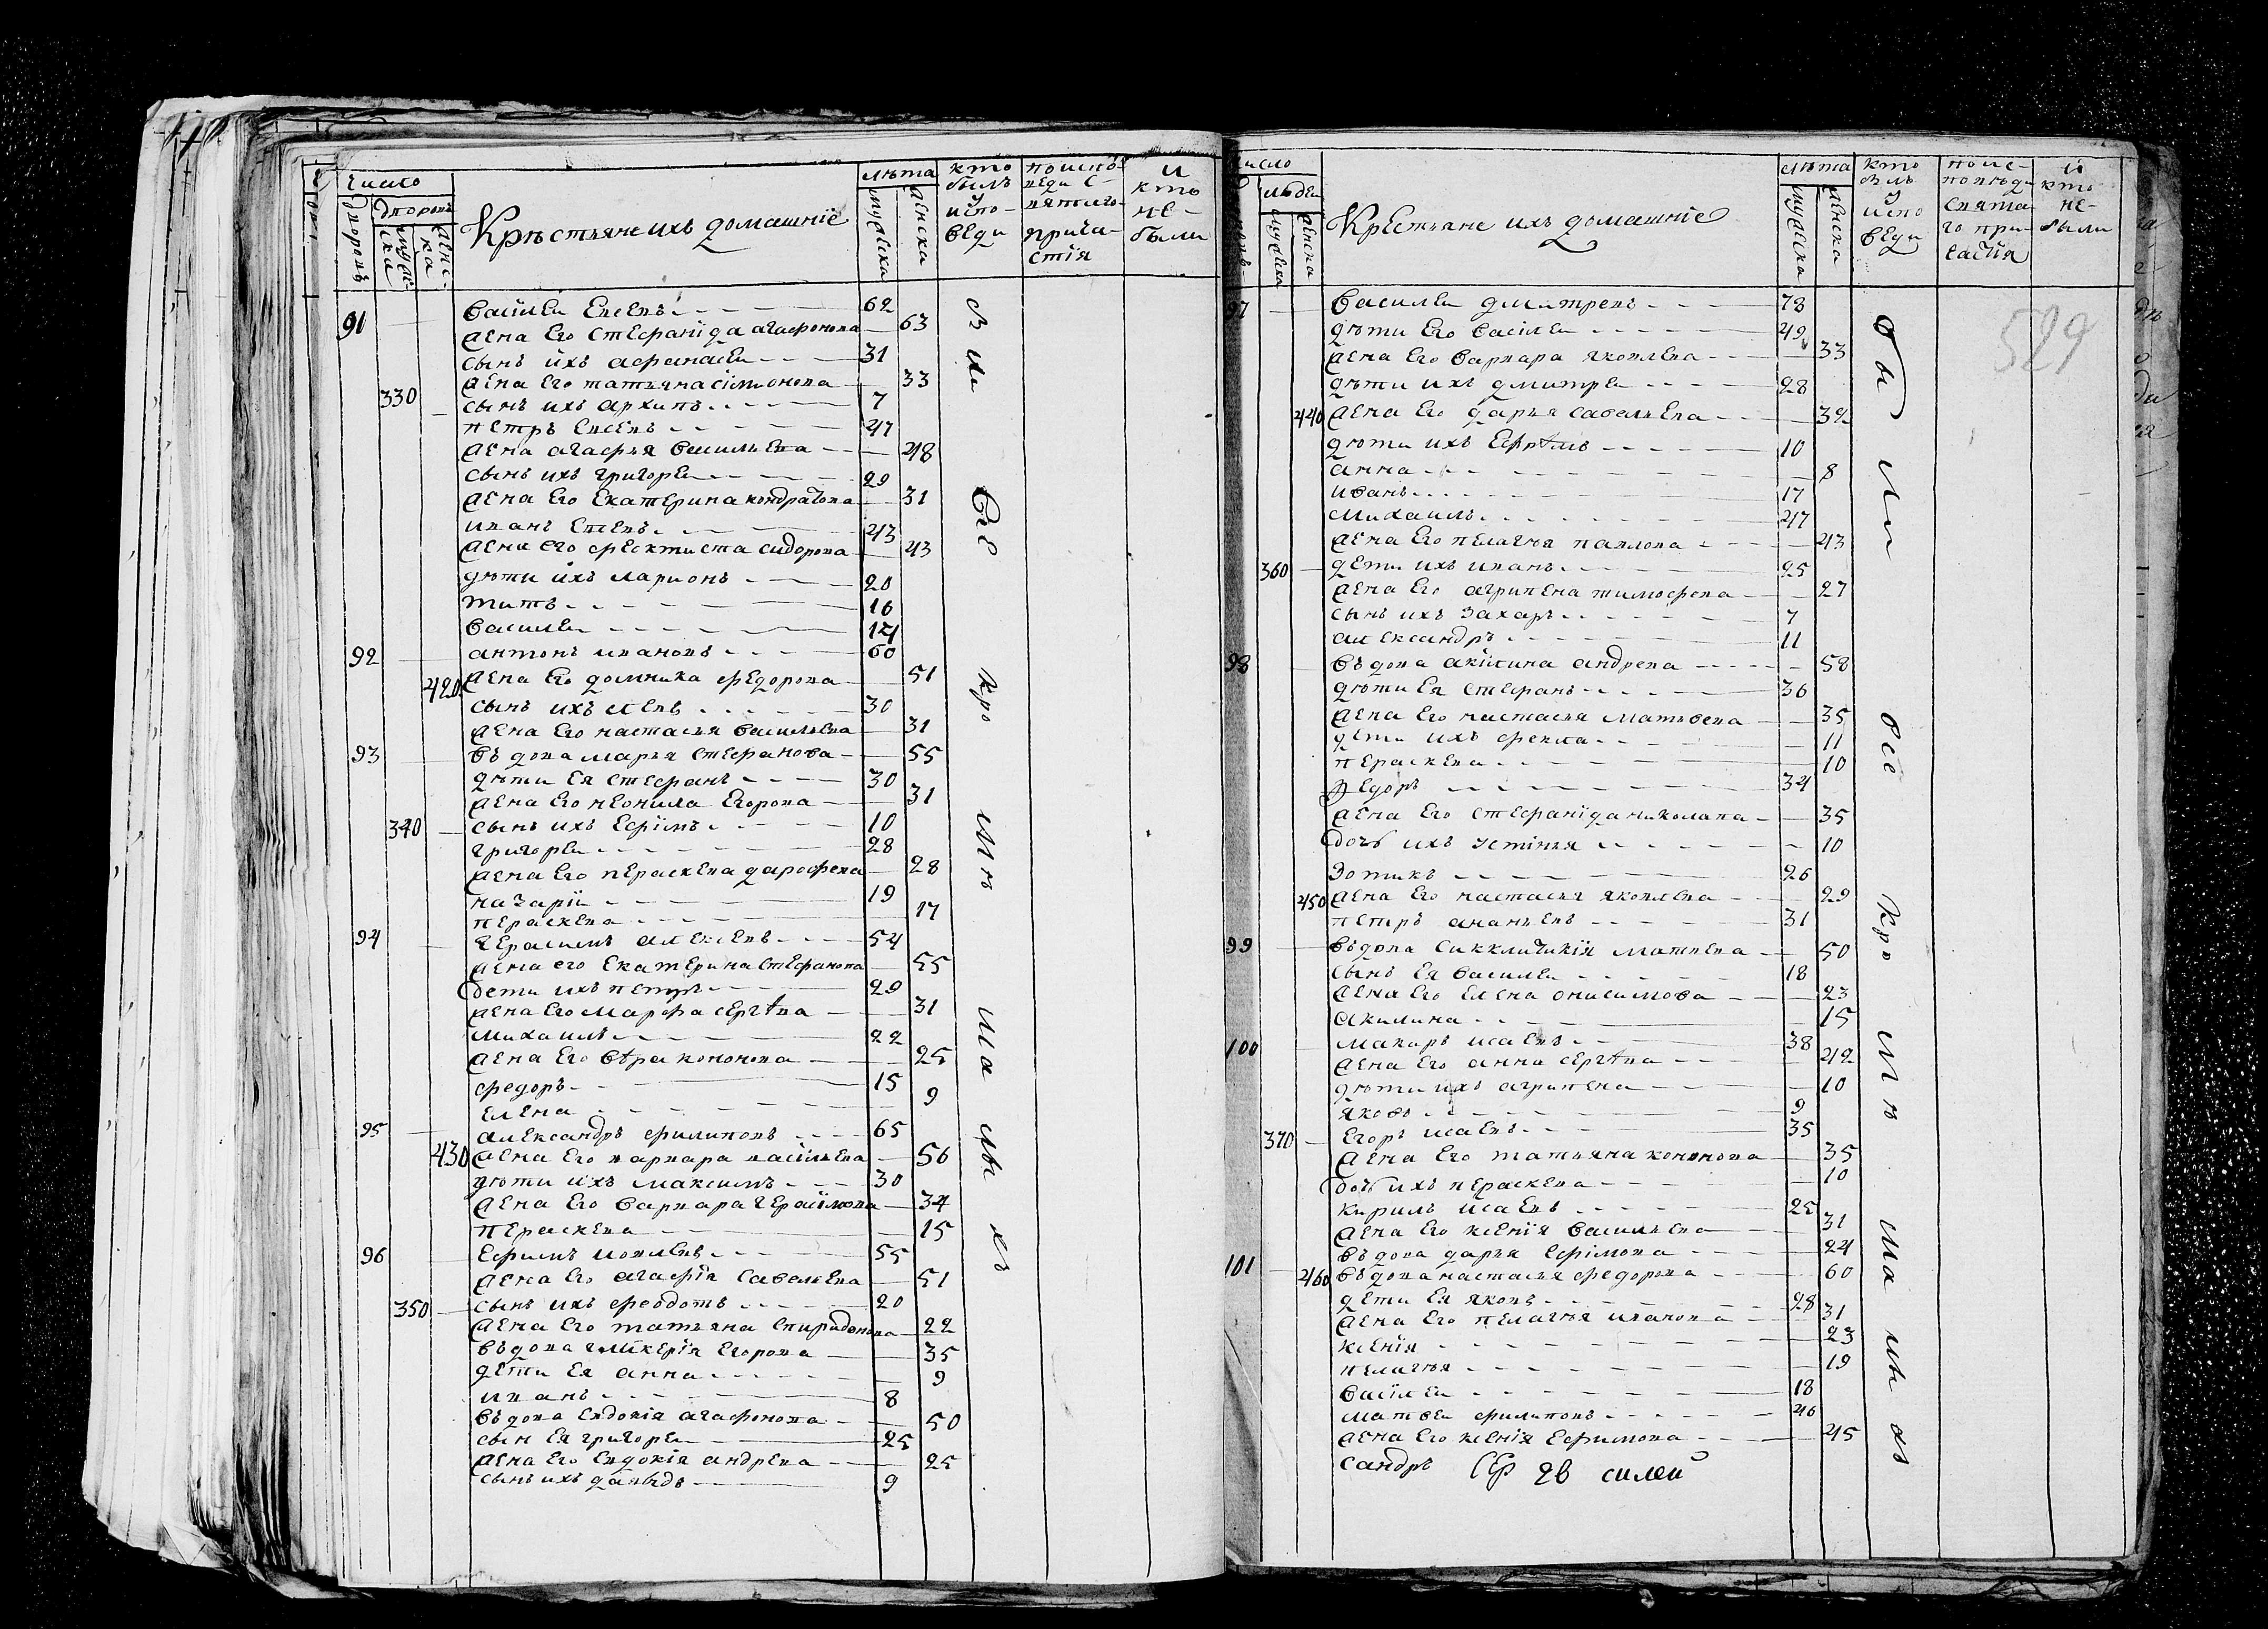 число
дворовъ
мужеска
женска
Крѣстьяне ихъ домашніе
лѣта
мужеска
женска
кто былъ у исповеди
и кто не были
91 Василеи Евсевъ 62
жена Его Стефанида агафонова 63
сынъ ихъ афанасеи 31
жена Его татьяна сімионова 33
330 сынъ ихъ архипъ 7
петръ Евсевъ 47
жена агафья Васильева 48
сынъ ихъ григореи 29
жена Его Екатерина кондратова 31
иванъ Евсевъ 43
жена его феоктиста сидорова 43
дѣти ихъ ларионъ 20
титъ 16
Василеи 14
92 антонъ ивановъ 60
420 жена Его домника федорова 51
сынъ ихъ левъ 30
жена Его настасья Васильева 31
93 Въдова марья Стефанова 55
дѣти Ея Стефанъ 30
жена Его неонила Егорова 31
340 сынъ ихъ Ефімъ 10
григореи 28
жена Его пераскева дарофева 28
назаріи 19
пераскева 17
94 герасимъ алексевъ 54
жена его Екатерина Стефанова 55
дети ихъ петръ 29
жена Его Марфа сергѣва 31
михаилъ 22
жена Его вѣра кононова 25
федоръ 15
Елена 9
95 александръ филиповъ 65
430 жена Его варвара васільева 56
дѣти ихъ максимъ 30
жена Его Варвара герасімова 34
пераскева 15
96 Ефимъ иовлевъ 55
жена Его агафія Савельева 51
350 сынъ ихъ феодотъ 20
жена Его татьяна Спиридонова 22
въдова гликерія Егорова 35
дети Ея анна 9
иванъ 8
въдова Евдокія агафонова 50
сын Ея григореи 25
жена Его Евдокія андрева 25
сынъ ихъ давыдъ 9
число
людеи
мужеска
женска
Крестьяне ихъ домашніе
лѣта
мужеска
женска
и кто не были
529
97 Василеи дмитревъ 78
дѣти Его Васілеи 49
жена Его Варвара яковлева 33
дѣти ихъ дмитреи 28
440 жена Его дарья савельева 32
дѣти ихъ Ефрѣмъ 10
анна 8
иванъ 17
михаилъ 47
жена Его пелагья павлова 43
360 дети ихъ иванъ 25
жена Его агрипена тимофева 27
сынъ ихъ захаръ 7
александръ 11
98 Въдова акилина андрева 58
дѣти Ея Стефанъ 36
жена Его настасья матвеева 35
дети ихъ фекла 11
пераскева 10
Федоръ 34
жена Его Стефаніда николава 35
дочь ихъ устінья 10
зотикъ 26
450 жена Его настасья яковлева 29
петръ ананьевъ 31
99 Въдова Матвева 50
сынъ Ея Василеи 18
жена Его Елена онисимова 23
акилина 15
100 макаръ исаевъ 38
жена Его анна сергѣва 42
дѣти ихъ агрипена 10
яковъ 9
370 Егоръ исаевъ 35
жена Его татьяна кононова 35
дочь ихъ пераскева 10
кирилъ исаевъ 25
жена Его ксенія Васильева 31
въдова дарья Ефімова 24
101 460 въдова настасья федорова 60
дети Ея яковъ 28
жена Его пелагья иванова 31
ксенія 23
пелагья 19
Васілеи 18
матвеи филиповъ 46
жена Его ксенія Ефимова 45
сандръ